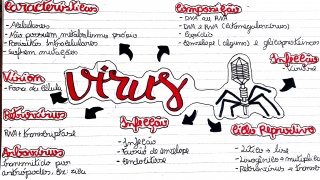 Características
- Acelulares
- Não possuem metabolismo próprio
- Parasitas intracelulares
- Sofrem mutações
Composição
- DNA ou RNA
- DNA e RNA (citomegalovírus)
- Capsídio
- Envelope (alguns) e glicoproteínas
Vírion
- Fora da célula
vírus
Infecção
Retrovírus
RNA transcriptase
Infecção
- Injeção
- Fusão do envelope
- Endocitose
Ciclo Reprodutivo
- Lítico =
- Lisogênico = multiplica
- Retrovírus =
Arbovírus
transmitido por
artrópodes. Ex: